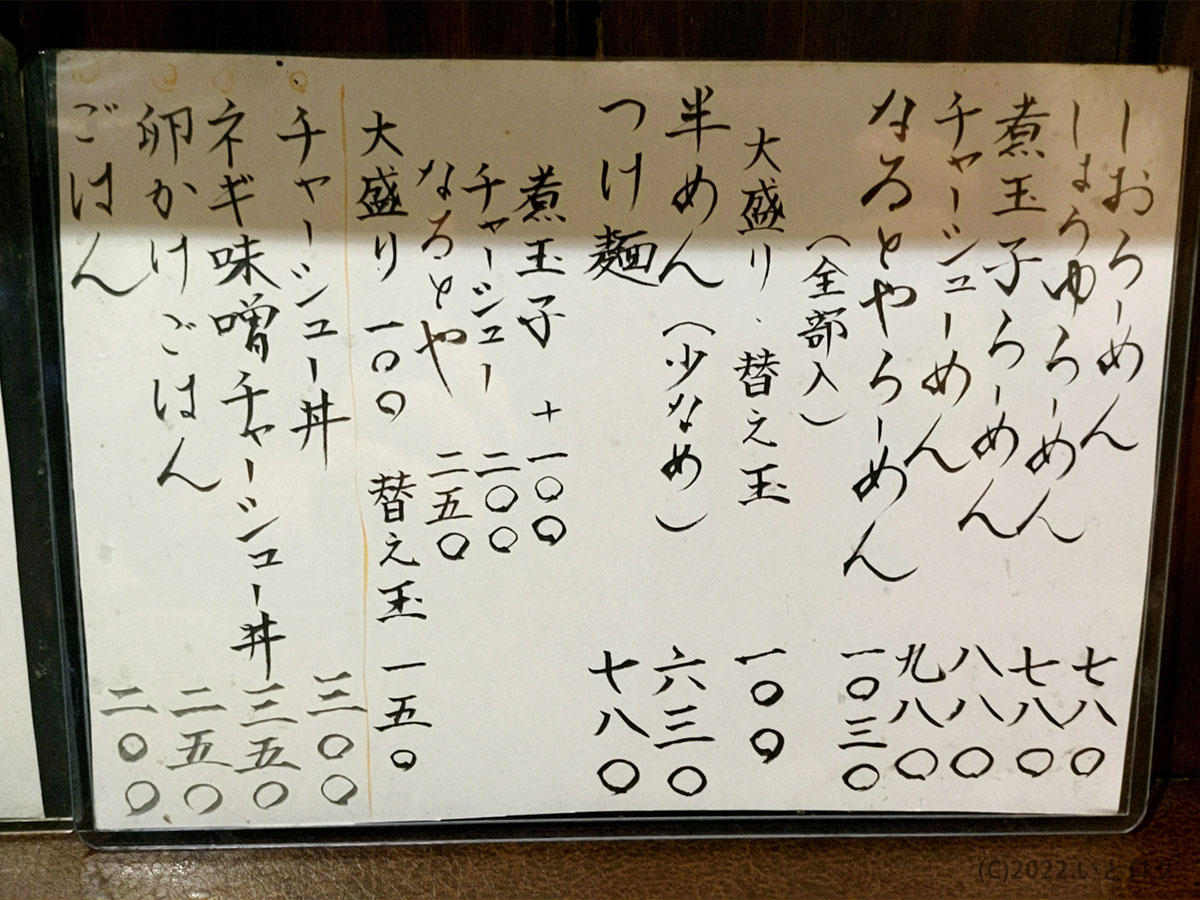 しおらーめん 七八〇
しょうゆらーめん 七八〇
煮玉子らーめん 八八〇
チャーシューめん 九八〇
なるとやらーめん 一〇三〇
（全部入）
大盛り・替え玉 一〇〇
半めん（少なめ） 六三〇
つけ麺 七八〇
煮玉子 +一〇〇
チャーシュー 二〇〇
なるとや 二五〇
大盛り 一〇〇 替え玉 一五〇
チャーシュー丼 三〇〇
ネギ味噌チャーシュー丼 三五〇
卵かけごはん 二五〇
ごはん 二〇〇
(C)2022.いとログ